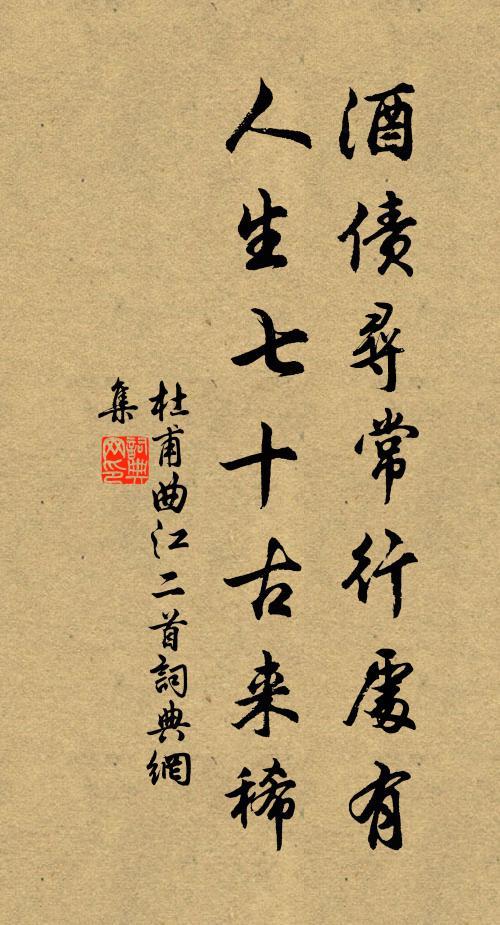 酒債尋常行處有
人生七十古来稀
杜甫曲江二首詞典網
集
詞典
网印